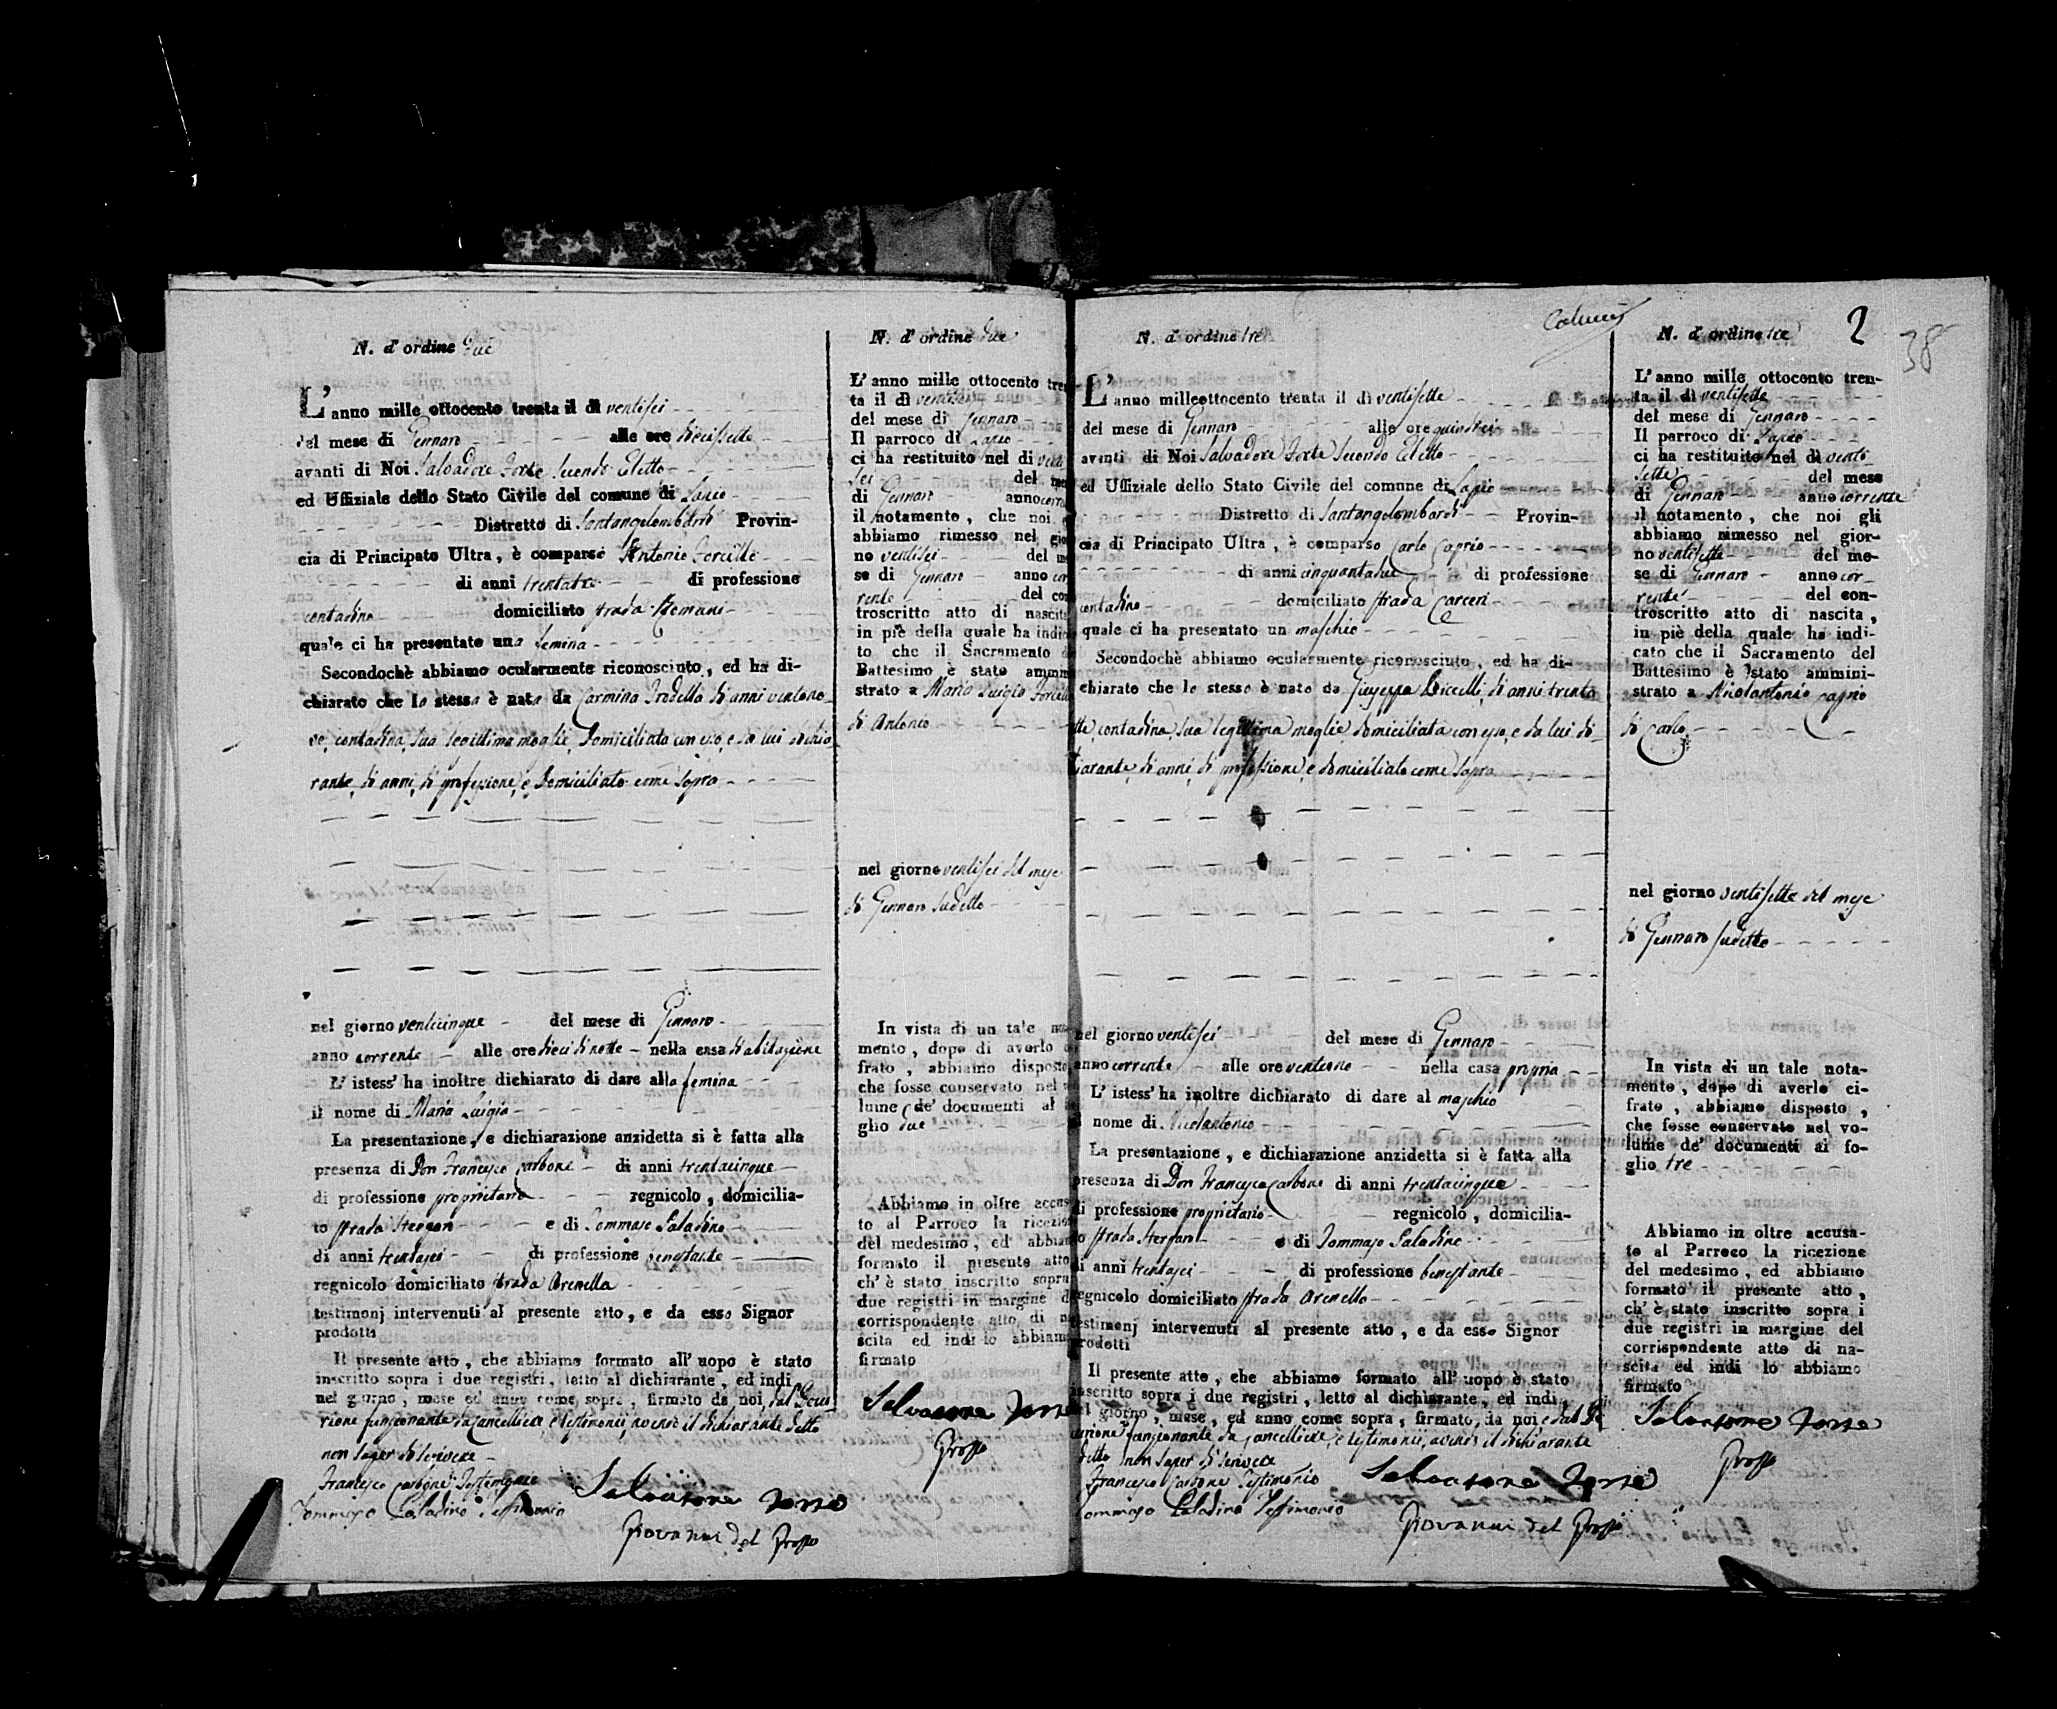 N. d'ordine due
L'anno mille ottocento trenta il dì ventisei
del mese di Gennaro alle ore diecissette
avanti di Noi Salvadore Forte Secondo Eletto
ed Uffiziale dello Stato Civile del comune di Lapio
Distretto di Santangelombardi Provin-
cia di Principato Ultra, è comparso Antonio
di anni trentatre di professione
contadino domiciliato strada
quale ci ha presentato una femina
Secondochè abbiamo ocularmente riconosciuto, ed ha di-
chiarato che la stessa è nata da Carmina di anni ventono
ve, contadina, sua legittima moglie, domiciliata con esso, e da lui dichia
rante, di anni, di professione, e domiciliato come sopra
nel giorno venticinque del mese di Gennaro
anno corrente alle ore diecinove nella casa d'abitazione
L'istess' ha inoltre dichiarato di dare alla femina
il nome di Maria Luigia
La presentazione, e dichiarazione anzidetta si è fatta alla
presenza di Don Francesco Carbone di anni trentacinque
di professione proprietario regnicolo, domicilia-
to strada e di Tommaso Paladino
di anni trentasei di professione benestante
regnicolo domiciliato strada Arenella
testimonj intervenuti al presente atto, e da esso Signor
prodotti
Il presente atto, che abbiamo formato all'uopo è stato
inscritto sopra i due registri, letto al dichiarante, ed indi
nel giorno, mese ed anno come sopra, firmato da noi, dal Decu
rione funzionante da Cancelliere, e testimonii, avendo il dichiarante detto
non saper di scrivere
Francesco Carbone Testimonio
Tommaso Paladino Testimonio
Salvatore Forte
Giovanni del Grosso
N. d'ordine due
L'anno mille ottocento tren
ta il dì ventisei
del mese di Gennaro
Il parroco di Lapio
ci ha restituito nel dì venti
sei del me
di Gennaro anno corre
il notamento, che noi
abbiamo rimesso nel gior
no ventisei del m
se di Gennaro anno cor
rente del con
troscritto atto di nascita
in piè della quale ha indic
to che il Sacramento d
Battesimo è stato ammin
strato a Maria Luigia
di Antonio
nel giorno ventisei del mese
di Gennaro sudetto
In vista di un tale no
mento, dopo di averlo c
frato, abbiamo disposto
che fosse conservato nel v
lume de' documenti al
glio due
Abbiamo in oltre accus
to al Parroco la ricezion
del medesimo, ed abbiam
formato il presente atto
ch'è stato inscritto sopra
due registri in margine d
corrispondente atto di n
scita ed indi lo abbiamo
firmato
Salvatore Forte
Grosso
N. d'ordine tre
L'anno milleottocento trenta il dì ventisette
del mese di Gennaro alle ore quindici
avanti di Noi Salvadore Forte Secondo Eletto
ed Uffiziale dello Stato Civile del comune di Lapio
Distretto di Santangelombardi Provin-
cia di Principato Ultra, è comparso Carlo Caprio
di anni cinquantadue di professione
contadino domiciliato strada Carceri
quale ci ha presentato un maschio
Secondochè abbiamo ocularmente riconosciuto, ed ha di-
chiarato che lo stesso è nato da Giuseppa di anni trenta
contadina, sua legittima moglie domiciliata con esso, e da lui di
chiarante, di anni, di professione, e domiciliato come sopra
nel giorno ventisei del mese di Gennaro
anno corrente alle ore ventuno nella casa propria
L'istess' ha inoltre dichiarato di dare al maschio
il nome di Nicolantonio
La presentazione, e dichiarazione anzidetta si è fatta alla
presenza di Don Francesco Carbone di anni trentacinque
di professione proprietario regnicolo, domicilia-
to strada e di Tommaso Paladino
di anni trentasei di professione benestante
regnicolo domiciliato strada Arenella
testimonj intervenuti al presente atto, e da esso Signor
prodotti
Il presente atto, che abbiamo formato all'uopo è stato
inscritto sopra i due registri, letto al dichiarante, ed indi
nel giorno, mese, ed anno come sopra, firmato, da noi e dal De
curione funzionante da Cancelliere, e testimonii, avendo il dichiarante
detto non saper di scrivere
Francesco Carbone Testimonio
Tommaso Paladino Testimonio
Salvatore Forte
Giovanni del Grosso
N. d'ordine tre
2
38
L'anno mille ottocento tren-
ta il dì ventisette
del mese di Gennaro
Il parroco di Lapio
ci ha restituito nel dì venti
sette del mese
di Gennaro anno corrente
il notamento, che noi gli
abbiamo rimesso nel gior-
no ventisette del me-
se di Gennaro anno cor-
rente del con-
troscritto atto di nascita,
in piè della quale ha indi-
cato che il Sacramento del
Battesimo è stato ammini-
strato a Nicolantonio Caprio
di Carlo
nel giorno ventisette del mese
di Gennaro sudetto
In vista di un tale nota-
mento, dopo di averlo ci-
frato, abbiamo disposto,
che fosse conservato nel vo-
lume de' documenti al fo-
glio tre
Abbiamo in oltre accusa-
to al Parroco la ricezione
del medesimo, ed abbiamo
formato il presente atto,
ch'è stato inscritto sopra i
due registri in margine del
corrispondente atto di na-
scita ed indi lo abbiamo
firmato
Salvatore Forte
Grosso